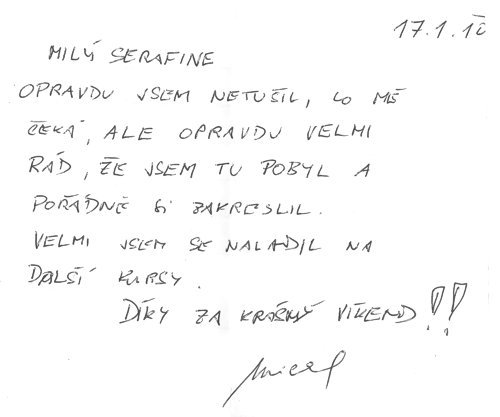 17.1.10
MILÝ SERAFINE
OPRAVDU JSEM NETUŠIL, CO MĚ
ČEKÁ, ALE OPRAVDU VELMI
RÁD, ŽE JSEM TU POBYL A
POŘÁDNĚ SI ZAKRESLIL.
VELMI JSEM SE NALADIL NA
DALŠÍ KURSY.
DÍKY ZA KRÁSNÝ VÍKEND!!